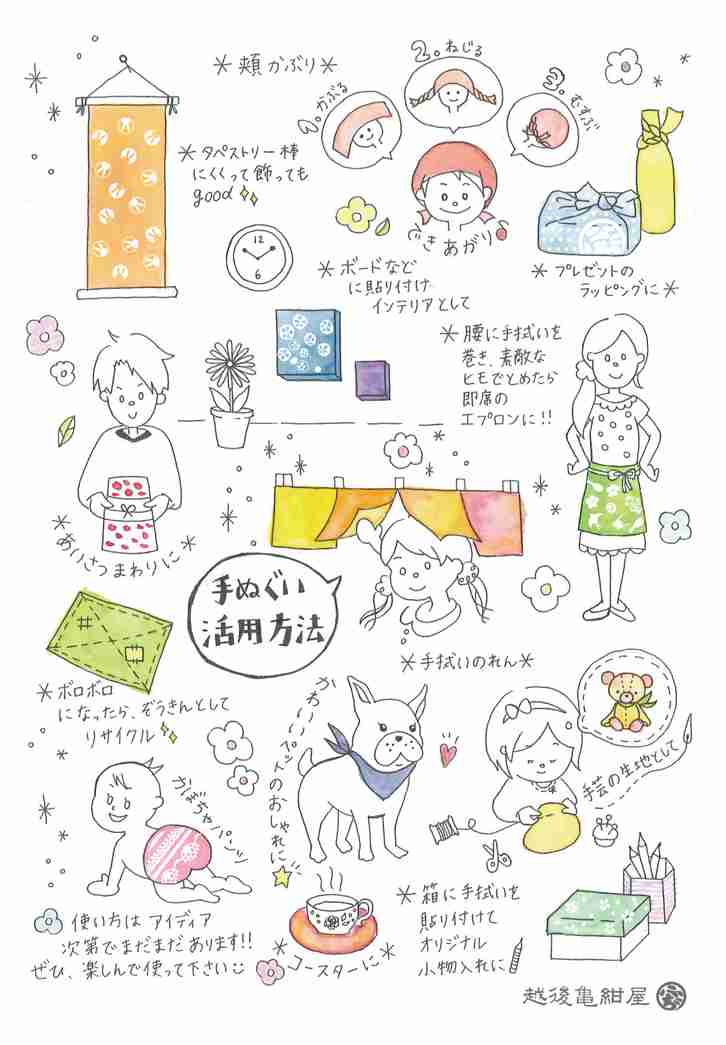 ＊頬かぶり＊
1.かぶる
2.ねじる
3.むすぶ
できあがり
＊タペストリー棒
にくくって飾っても
good
12
6
＊ボードなど
に貼り付け
インテリアとして
＊プレゼントの
ラッピングに＊
＊腰に手拭いを
巻き、素敵な
ヒモでとめたら
即席の
エプロンに!!
＊あいさつまわりに＊
手ぬぐい
活用方法
＊手拭いのれん＊
＊ボロボロ
になったら、ぞうきんとして
リサイクル
かぼちゃパンツ
かわいいペットのおしゃれに
手芸の生地として
＊コースターに＊
＊箱に手拭いを
貼り付けて
オリジナル
小物入れに
使い方は アイディア
次第でまだまだあります!!
ぜひ、楽しんで使って下さい
越後亀紺屋